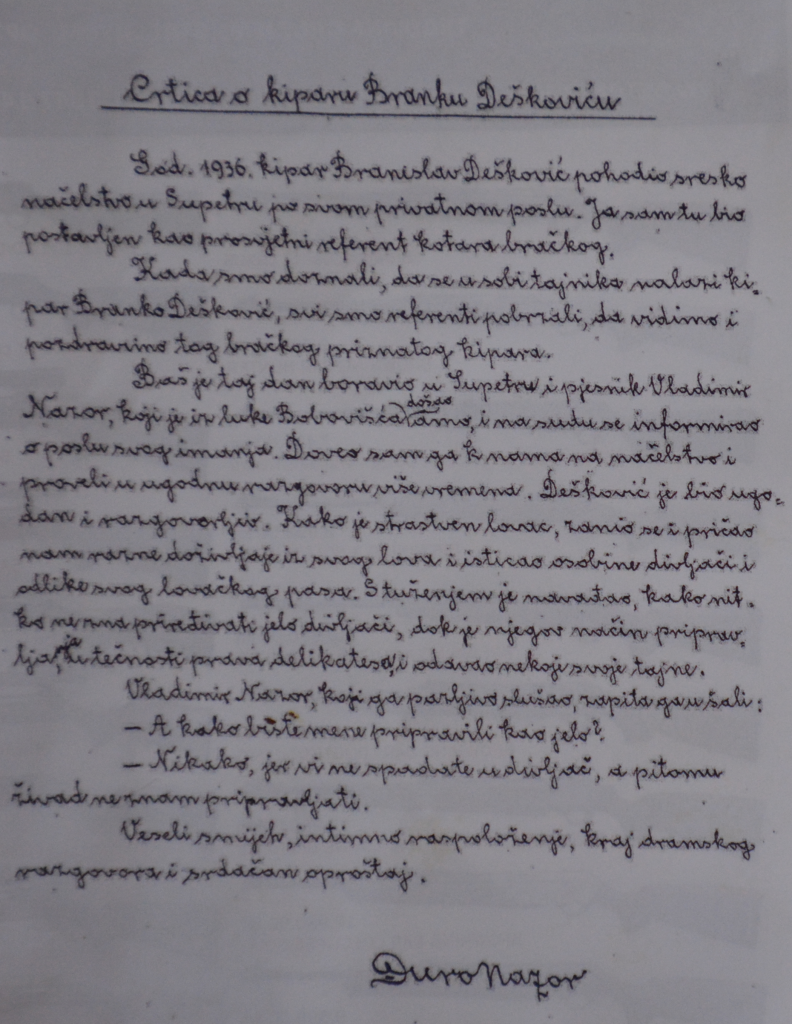 Crtica o kiparu Branku Deškoviću
God. 1936. kipar Branislav Dešković pohodio sresko
načelstvo u Supetru po svom privatnom poslu. Ja sam tu bio
postavljen kao prosvjetni referent kotara bračkog.
Kada smo doznali, da se u sobi tajnika nalazi ki-
par Branko Dešković, svi smo referenti pobrzali, da vidimo i
pozdravimo tog bračkog priznatog kipara.
Baš je taj dan boravio u Supetru i pjesnik Vladimir
Nazor, koji je iz luke Bobovišća došao amo, i na sudu se informirao
o poslu svog imanja. Doveo sam ga k nama na načelstvo i
proveli u ugodnu razgovoru više vremena. Dešković je bio ugo-
dan i razgovorljiv. Kako je strastven lovac, zanio se i pričao
nam razne doživljaje iz svog lova i isticao osobine divljači i
odlike svog lovačkog pasa. S tuženjem je navađao, kako nit-
ko ne zna priređivati jelo divljači, dok je njegov način priprav-
lja, u tečnosti prava delikatesa, i odavao nekoji svoje tajne.
Vladimir Nazor, koji ga pazljivo slušao, zapita ga u šali:
– A kako biste mene pripravili kao jelo?
– Nikako, jer vi ne spadate u divljač, a pitomu
živad ne znam pripravljati.
Veseli smijeh, intimno raspoloženje, kraj dramskog
razgovora i srdačan oproštaj.
Đuro Nazor